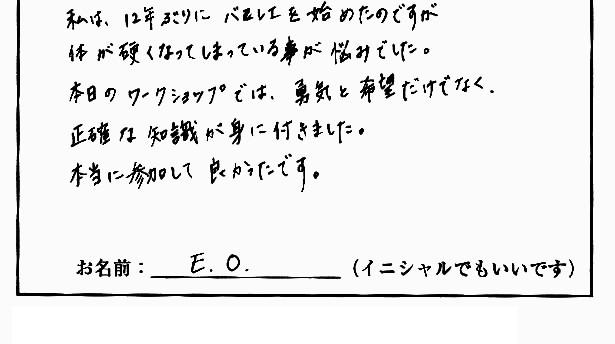 私は、12年ぶりにバレエを始めたのですが
体が硬くなってしまっている事が悩みでした。
本日のワークショップでは、勇気と希望だけでなく、
正確な知識が身に付きました。
本当に参加して良かったです。
お名前：E.O.（イニシャルでもいいです）